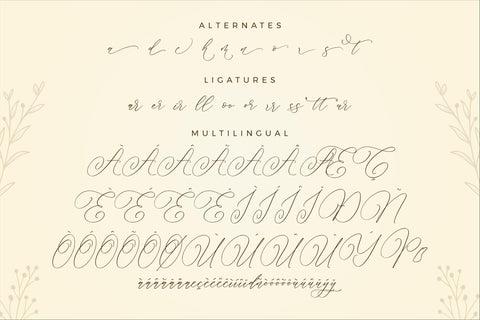 ALTERNATES
a d c k m a o r s t
LIGATURES
ar er ir ll oo or ur ss tt ar
MULTILINGUAL
À Á Â Ã Ä Å Æ Ç
È É Ê Ë Ì Í Î Ï Ð Ñ
Ò Ó Ô Õ Ö Ø Ù Ú Û Ü Ý Þ